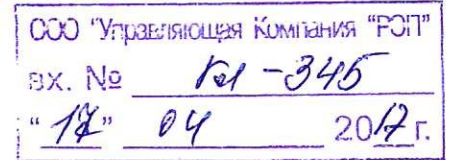 ООО "Управляющая Компания "РОП"
вх. № Кл-345
"17" 04 2017 г.